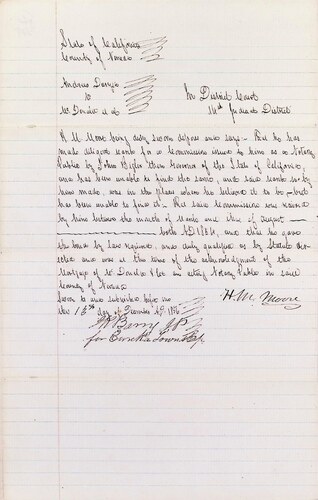 State of California
County of Nevada
Andrew
vs
Mc Donald et al
In District Court
14th Judicial District
H M Moore being duly sworn deposes and says - that he has
made diligent search for a Commission issued to him as a Notary
Public by John Bigler then Governor of the State of California,
and has been unable to find the same, and said search so by
him made, was in the place where he believed it to be - but
has been unable to find it. That said Commission was received
by him between the month of March and that of August
both AD 1854, and that he gave
the bond by law required, and duly qualified as by Statute
and was at the time of the acknowledgment of the
Mortgage of Mc Donald & Co an acting Notary Public in said
County of Nevada
H. M. Moore
Sworn to and subscribed before me
this 13th day of December AD 1856
Berry J.P.
for Eureka Township